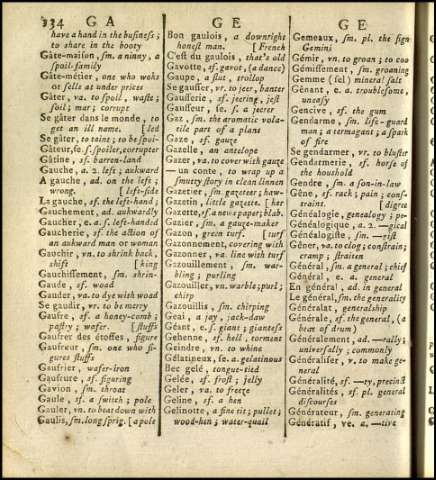 234 G A
G E
G E
have a hand in the business;
to share in the booty
Gâte-maison, sm. a ninny, a
spoil-family
Gâte-métier, one who woks
or sells at under prices
Gâter, va. to spoil, waste;
soil; mar; corrupt
Se gâter dans le monde, to
get an ill name. [led
Se gâter, to taint; to be spoil-
Gâteur, se. f. spoiler, corrupter
Gâtine, sf. barren-land
Gauche, a. 2. left; aukward
A gauche, ad. on the left;
wrong. [left-side
La gauche, sf. the left-hand;
Gauchement, ad. aukwardly
Gaucher, e. a. f. left-handed
Gaucherie, sf. the action of
an aukward man or woman
Gauchir, vn. to shrink back,
shift [king
Gauchissement, sm. shrin-
Gaude, sf. woad
Gauder, va. to dye with woad
Se gaudir, vr. to be merry
Gaufre, sf. a honey-comb;
pastry; wafer. [stuffs
Gaufrer des étoffes, figure
Gaufreur, sm. one who fi-
gures stuffs
Gaufrier, wafer-iron
Gaufrure, sf. figuring
Gavion, sm. throat
Gaule, sf. a switch; pole
Gauler, vn. to beat down with
Gaulis, sm. long sprig. [a pole
Bon gaulois, a downright
honest man. [French
C'est du gaulois, that's old
Gavotte, sf. gavot, (a dance)
Gaupe, a slut, trollop
Se gausser, vr. to jeer, banter
Gausserie, sf. jeering, jest
Gausseur, se. s. a jeerer
Gaz, sm. the aromatic vola-
tile part of a plant
Gaze, sf. gauze
Gazelle, an antelope
Gazer, va. to cover with gauze
— un conte, to wrap up a
smutty story in clean linnen
Gazetier, sm. gazeteer; haw-
Gazetin, little gazette. [ker
Gazette, sf. a news paper; blab.
Gazier, sm. a gauze-maker
Gazon, green turf. [turf
Gazonnement, covering with
Gazonner, va. line with turf
Gazouillement, sm. war-
bling; purling
Gazouiller, vn. warble; purl;
chirp
Gazouillis, sm. chirping
Geai, a jay, jack-daw
Géant, e. s. giant; giantess
Gehenne, sf. hell, torment
Geindre, vn. to whine
Gélatineux, se. a. gelatinous
Bec gelé, tongue-tied
Gelée, sf. frost; jelly
Geler, va. to freeze
Geline, sf. a hen
Gelinotte, a fine tit; pullet;
wood-hen; water-quail
Gemeaux, sm. pl. the sign
Gemini
Gémir, vn. to groan; to coo
Gémissement, sm. groaning
Gemme (sel) mineral salt
Gênant, e. a. troublesome,
uneasy
Gencive, sf. the gum
Gendarme, sm. life-guard
man; a termagant; a spark
of fire
Se gendarmer, vr. to bluster
Gendarmerie, sf. horse of the
houshold
Gendre, sm. a son-in-law
Gêne, sf. rack; pain; con-
straint. [degree
Généalogie, genealogy; pe-
Généalogique, a. 2. —gical
Généalogiste, sm. —gist
Gêner, va. to clog; constrain;
cramp; straiten
Général, sm. a general; chief
Général, e. a. general
En général, ad. in general
Le général, sm. the generality
Généralat, generalship
Générale, sf. the general, (a
beat of drum)
Généralement, ad. —rally;
universally, commonly
Généraliser, v. to make ge-
neral
Généralité, sf. —ty, precinct
Généralités, sf. pl. general
discourses
Générateur, sm. generating
Génératif, ve. a. —tive